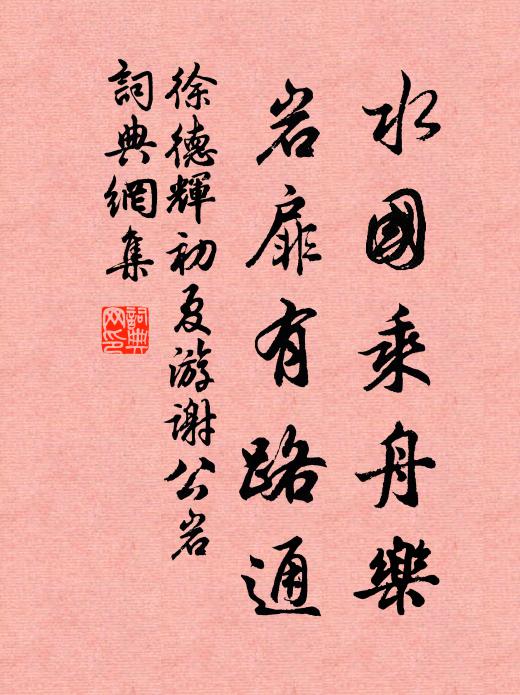 水國乘舟樂
岩扉有路通
徐德輝初夏游謝公岩
詞典網集
詞典网印